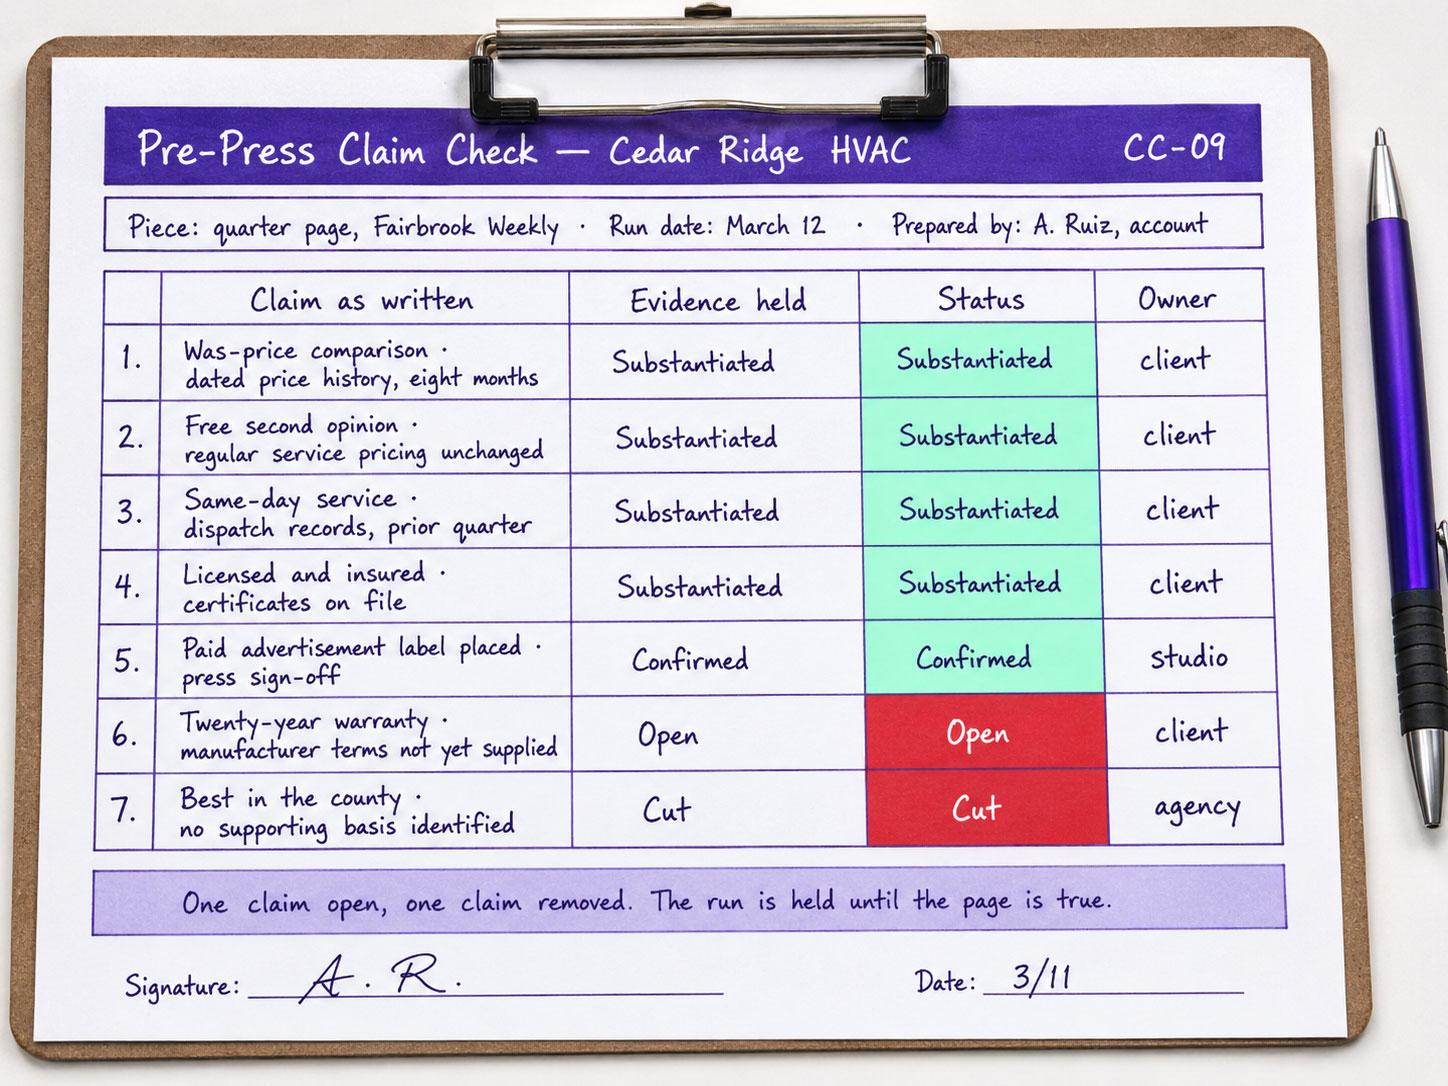 Pre-Press Claim Check — Cedar Ridge HVAC CC-09
Piece: quarter page, Fairbrook Weekly · Run date: March 12 · Prepared by: A. Ruiz, account
Claim as written Evidence held Status Owner
1. Was-price comparison ·
dated price history, eight months
Substantiated Substantiated client
2. Free second opinion ·
regular service pricing unchanged
Substantiated Substantiated client
3. Same-day service ·
dispatch records, prior quarter
Substantiated Substantiated client
4. Licensed and insured ·
certificates on file
Substantiated Substantiated client
5. Paid advertisement label placed ·
press sign-off
Confirmed Confirmed studio
6. Twenty-year warranty ·
manufacturer terms not yet supplied
Open Open client
7. Best in the county ·
no supporting basis identified
Cut Cut agency
One claim open, one claim removed. The run is held until the page is true.
Signature: A. R. Date: 3/11